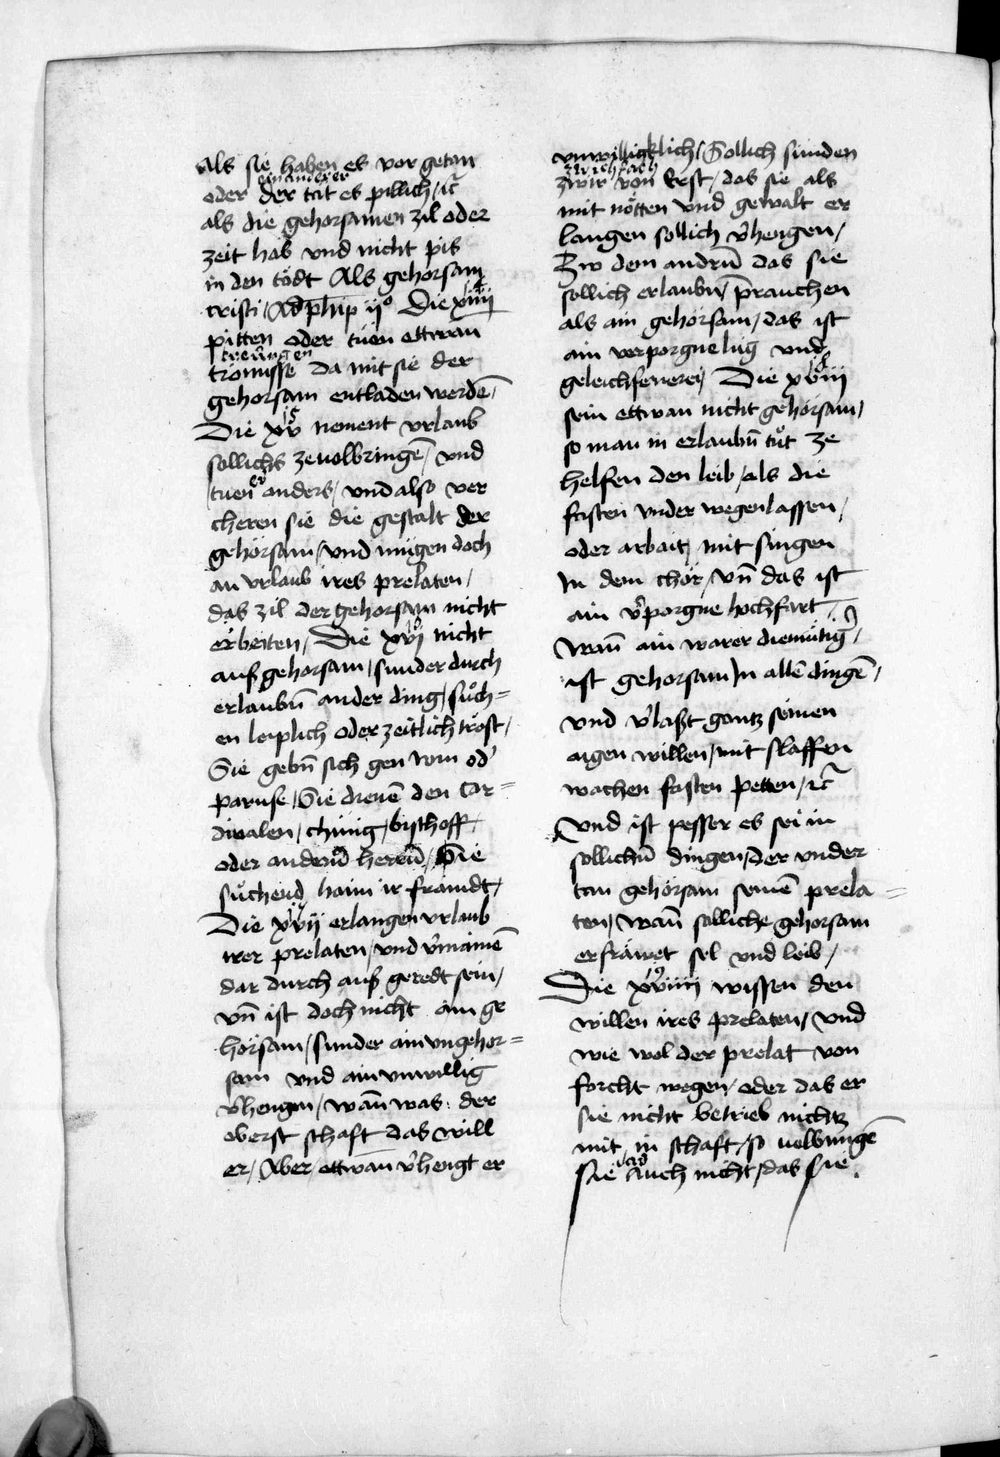 als sie haben es vor getan
ain anderer
oder der tät es pillich / ꝛc̄
als die gehorsamen zil oder
zeit hab vnd nicht pis
in den tödt Als gehorsam
cristi / Ad phip ijᵒ Die xiiij
pitten oder tüen ettwan
treüngen
trömisse Da mit sie der
gehorsam entladen werdē /
15
Die xv nement vrlaub
sollichs zeuolbringē / vnd
tuen er anders / vnd also ver
cheren sie die gestalt der
gehörsam / vnd mügen doch
an vrlaub ires prelaten /
das zil der gehorsam nicht
erbeiten / Die xvj nicht
auß gehorsam / sunder durch
erlaubn̄ ander ding / süch=
en leiplich oder zeitlich tröst /
Sie gebn̄ sich gen rom od'
paruse / Sie dienē den Car=
dinalen / chünig / bischoff /
oder andern̄ herrn̄ / Sie
süchend haim ir fraindt /
Die xvij erlangen vrlaub
irer prelaten / vnd v'mainē
dar durch auß geredt sein /
vn̄ ist doch nicht ain ge
hörsam / sunder ain vngehor=
sam vnd ain vnwillig
v'hengen / wan̄ was der
oberst schaft das will
er / Aber ettwan v'hengt er
vnwilligklich / Sollich sünden
zwichfach
zwir / von Erst / das sie als
mit nötten vnd gewalt er
langen sollich v'hengen /
Zw dem andrn̄ das sie
sollich erlaubn̄ / prauchen
als ain gehorsam / das ist
ain verporgne lüg vnd
geleichsenerei / Die xviij
sein ettwan nicht gehörsam /
so man in erlaubn̄ tüt ze
helfen den leib / als die
fasten vnder wegen lassen /
oder arbait / mit singen
In dem chör / vn̄ das ist
ain v'porgne hochfart /
Wan̄ ain warer diemütig' /
ist gehorsam In allē dingē /
vnd v'laßt gantz seinen
aigen willen / mit slaffen
wachen fasten petten / ꝛc̄
Vnd ist pesser es sei in
sollichn̄ dingen / Der vnder
tan gehörsam seinē prela=
ten / wan̄ solliche gehorsam
erfräwet sel vnd leib /
19
Die xviiij wissen den
willen ires prelaten / vnd
wie wol der prelat von
forcht wegen / oder das er
sie nicht betrieb nichtz
mit in schaft / so uolbringē
das
sie auch nicht / das sie